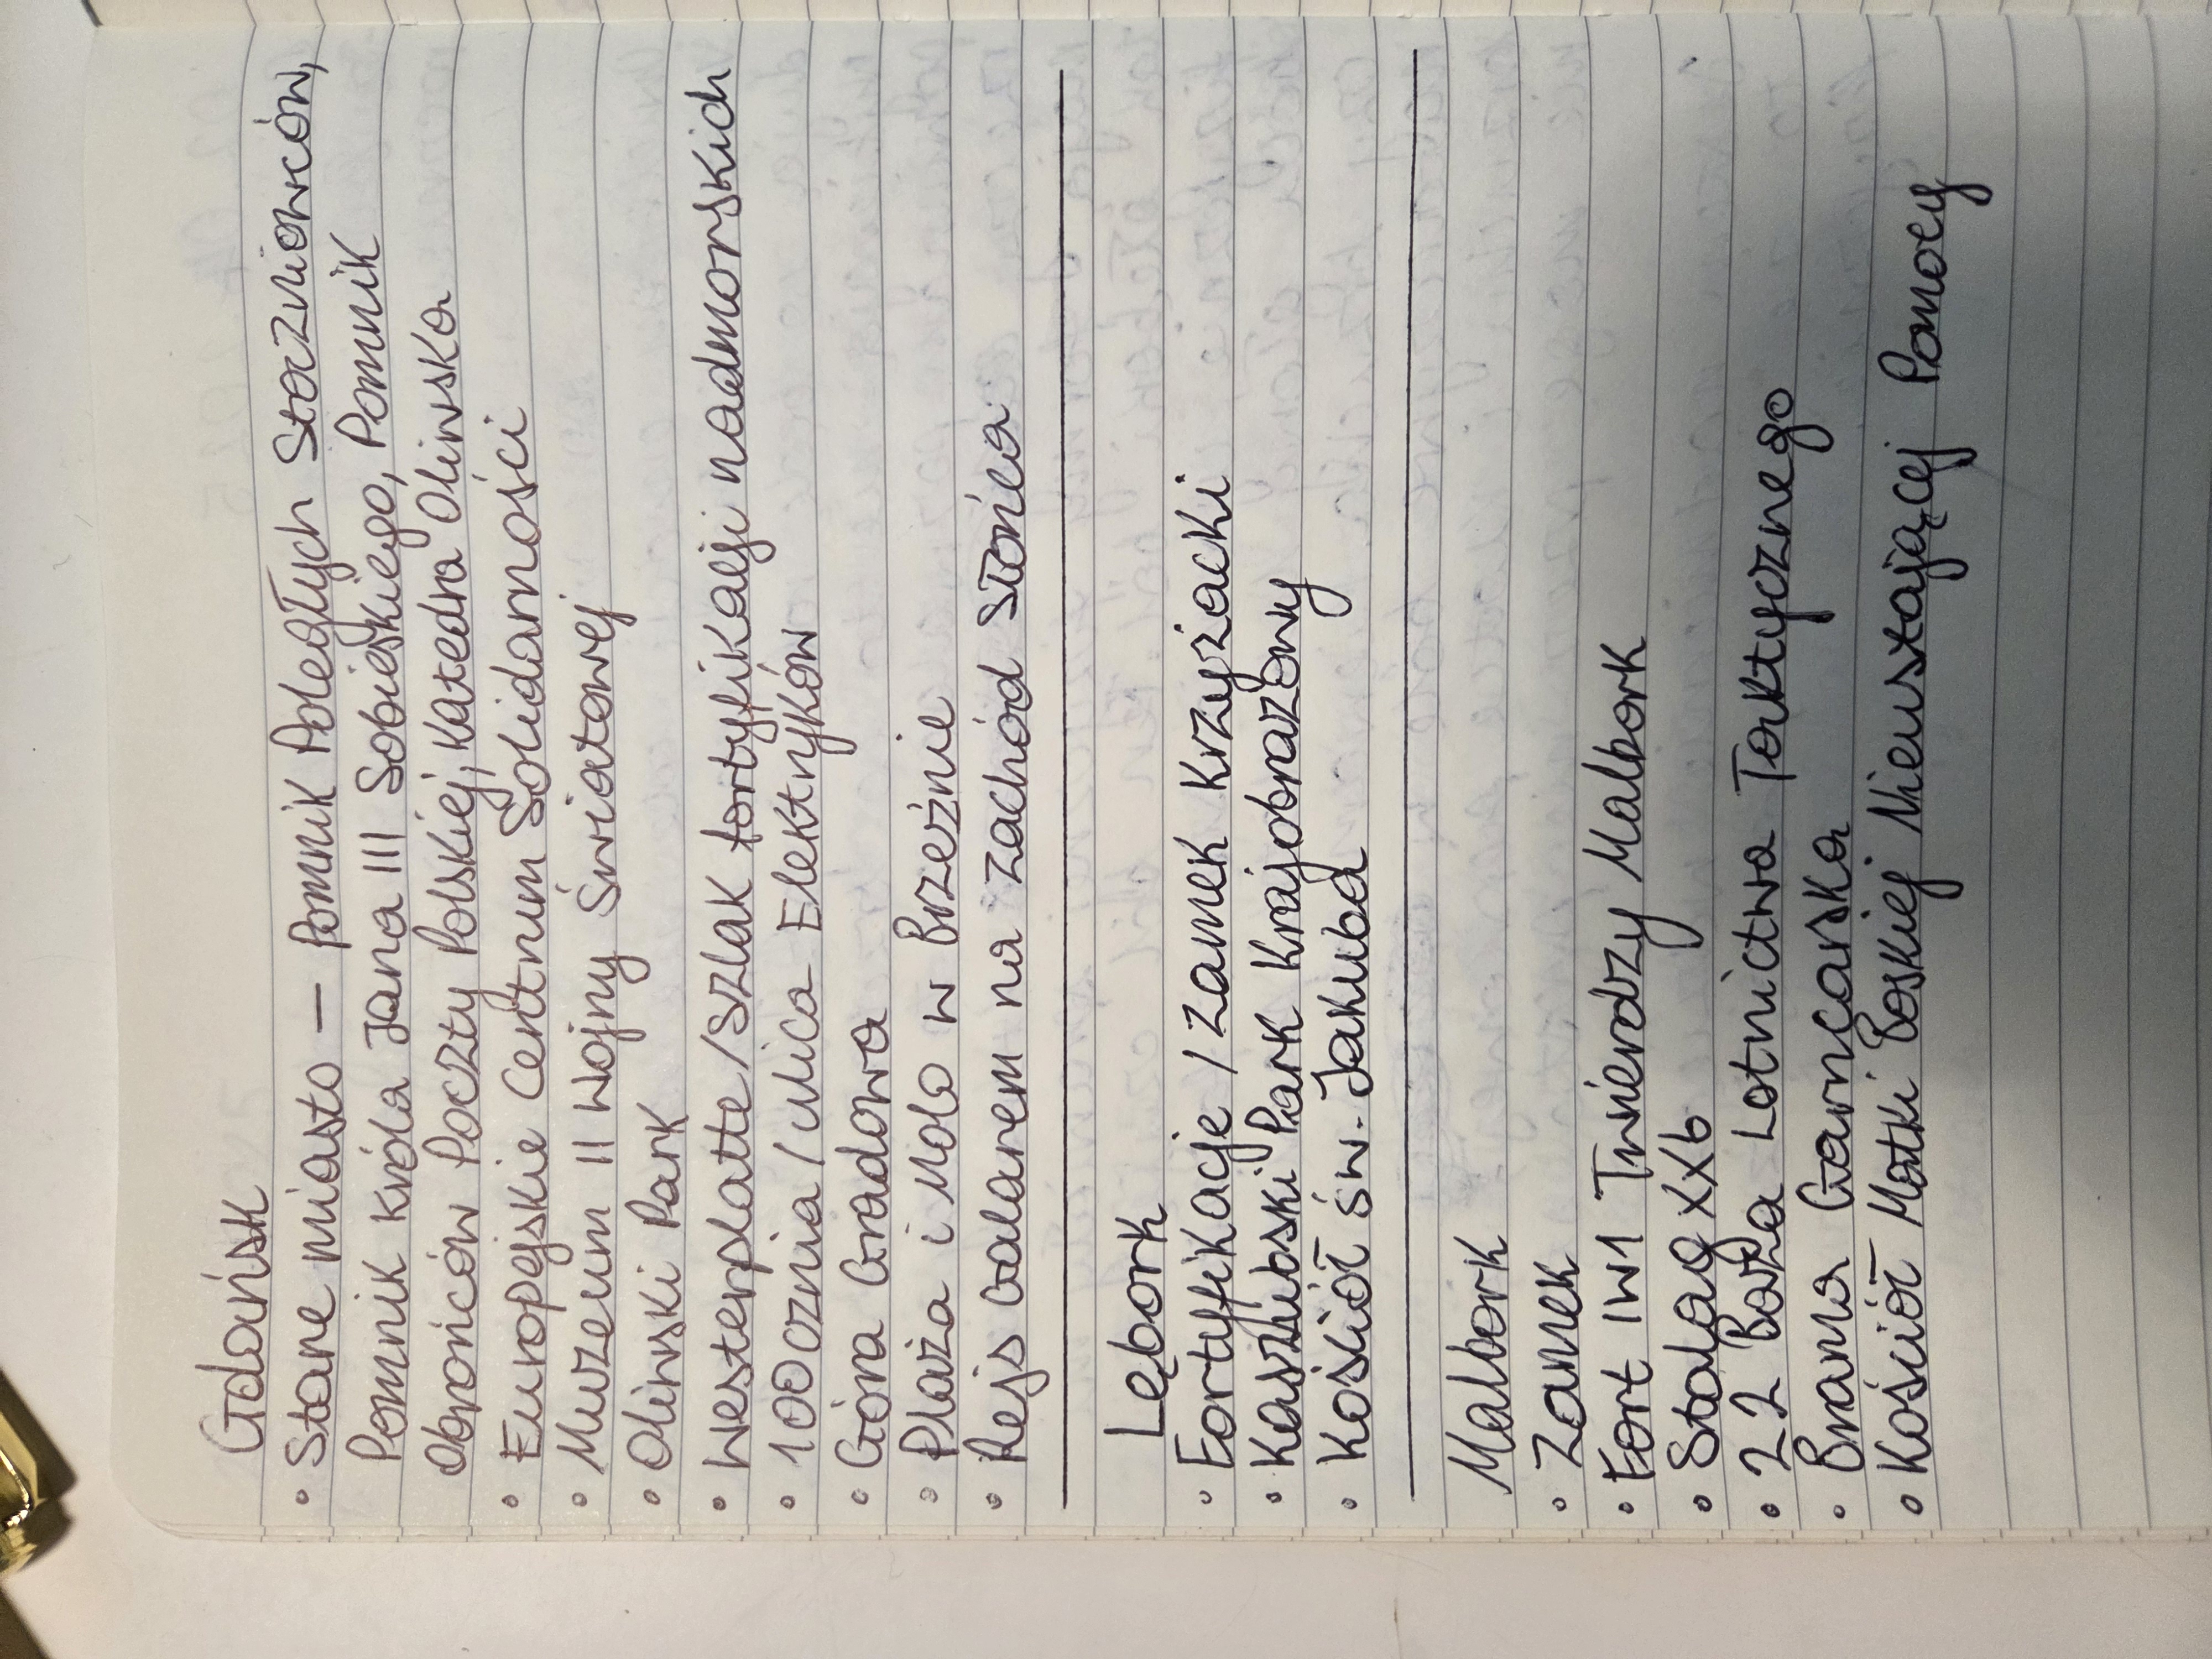 Gdańsk
• Stare miasto — Pomnik Poległych Stoczniowców,
Pomnik króla Jana III Sobieskiego, Pomnik
Obrońców Poczty Polskiej, Katedra Oliwska
• Europejskie Centrum Solidarności
• Muzeum II Wojny Światowej
• Oliwski Park
• Westerplatte/szlak fortyfikacji nadmorskich
• 100cznia/ulica Elektryków
• Góra Gradowa
• Plaża i Molo w Brzeźnie
• Rejs Galarem na zachód słońca
Lębork
• Fortyfikacje / Zamek Krzyżacki
• Kaszubski Park Krajobrazowy
• Kościół św. Jakuba
Malbork
• Zamek
• Fort IW1 Twierdzy Malbork
• Stalag XXb
• 22 Baza Lotnictwa Taktycznego
• Brama Garncarska
• Kościół Matki Boskiej Nieustającej Pomocy